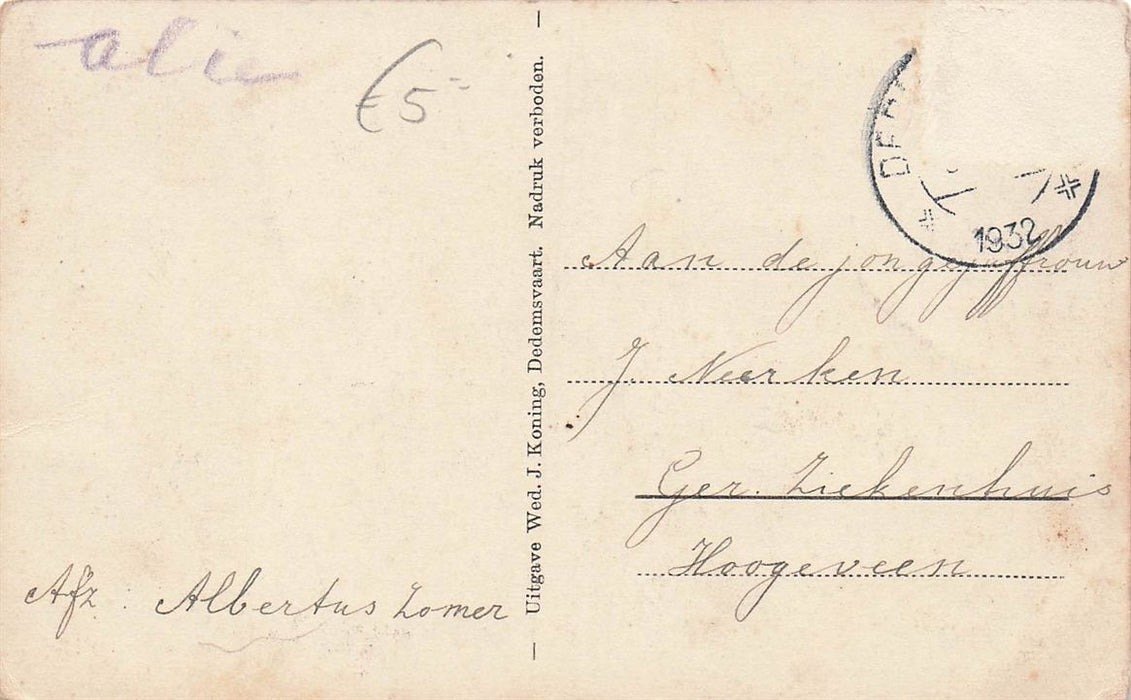 alie
€ 5-
Uitgave Wed. J. Koning, Dedemsvaart. Nadruk verboden.
1932
Aan de jongejuffrouw
J. Neerken
Ger. Ziekenhuis
Hoogeveen
Afz : Albertus Zomer